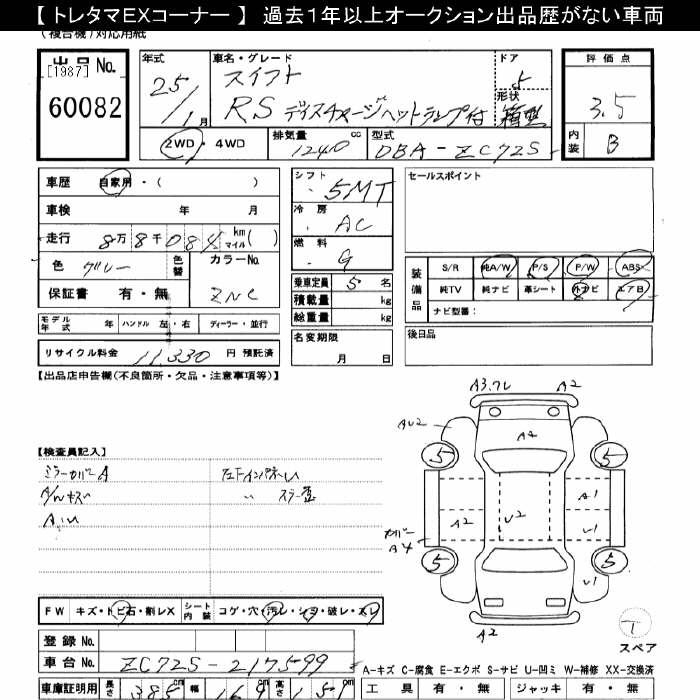 【 トレタマEXコーナー 】 過去1年以上オークション出品歴がない車両
(複合機)対応用紙
出品 No.
[1987]
60082
年式
25/1月
車名・グレード
スイフト
RS ディスチャージヘットランプ付
ドア
5
形状
箱型
評価点
3.5
内装
B
2WD・4WD
排気量
1240 cc
型式
DBA-ZC72S
車歴 自家用・( )
車検 年 月
走行 8万8千084 km マイル ( )
色 グレー
色替
カラーNo.
ZNC
保証書 有・無
モデル年式 年 ハンドル 左・右 ディーラー・並行
リサイクル料金 11,330 円 預託済
シフト
5MT
冷房
AC
燃料
G
乗車定員 5 名
積載量 kg
総重量 kg
名変期限
月 日
セールスポイント
装備品
S/R 純A/W P/S P/W ABS
純TV 純ナビ 革シート 外ナビ エアB
ナビ型番:
後日品
【出品店申告欄(不良箇所・欠品・注意事項等)】
【検査員記入】
ミラーカバーA
A/Wキズ
A.U
左Fインパネレ
A3.7L A2
AU2
A2
5 5
A2 U2 A1
U1
カバー
A4
5 5
U1
A2
T
スペア
FW キズ・トビ石・割レX シート内装 コゲ・穴・汚レ・シワ・破レ・スレ
登録 No.
車台 No. ZC72S-217599
車庫証明用 長さ 385 cm 幅 169 cm 高さ 151 cm
A-キズ C-腐食 E-エクボ S-サビ U-凹ミ W-補修 XX-交換済
工具 有・無 ジャッキ 有・無